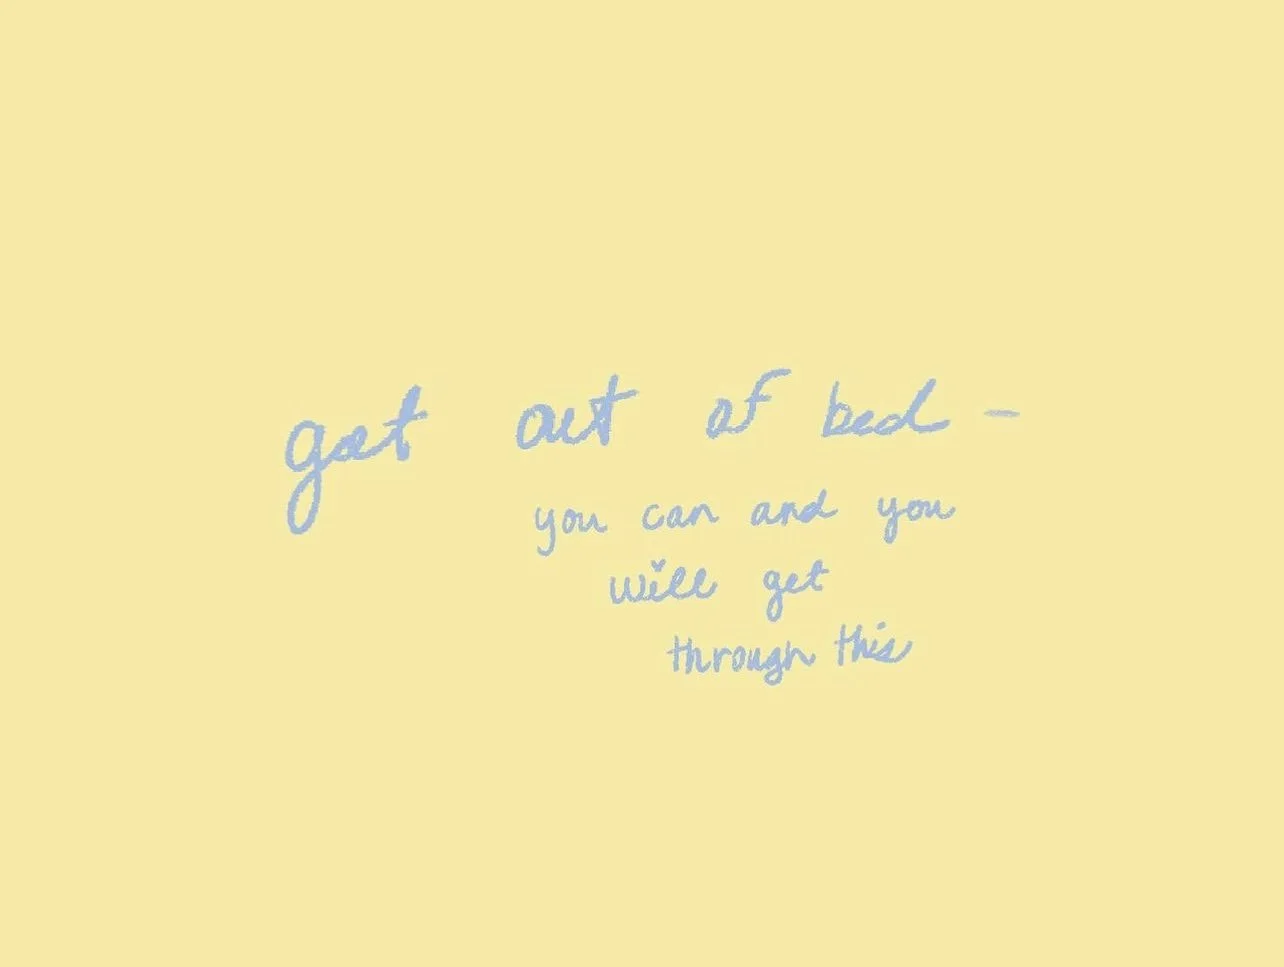 get out of bed -
you can and you
will get
through this